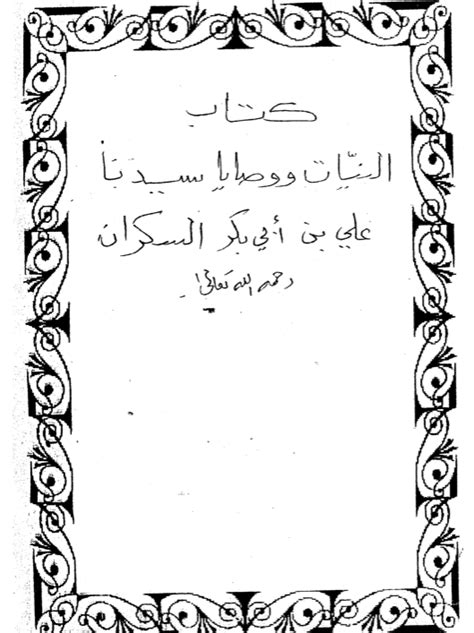 كتاب
النيّات ووصايا سيدنا
علي بن أبي بكر السكران
رحمه الله تعالى